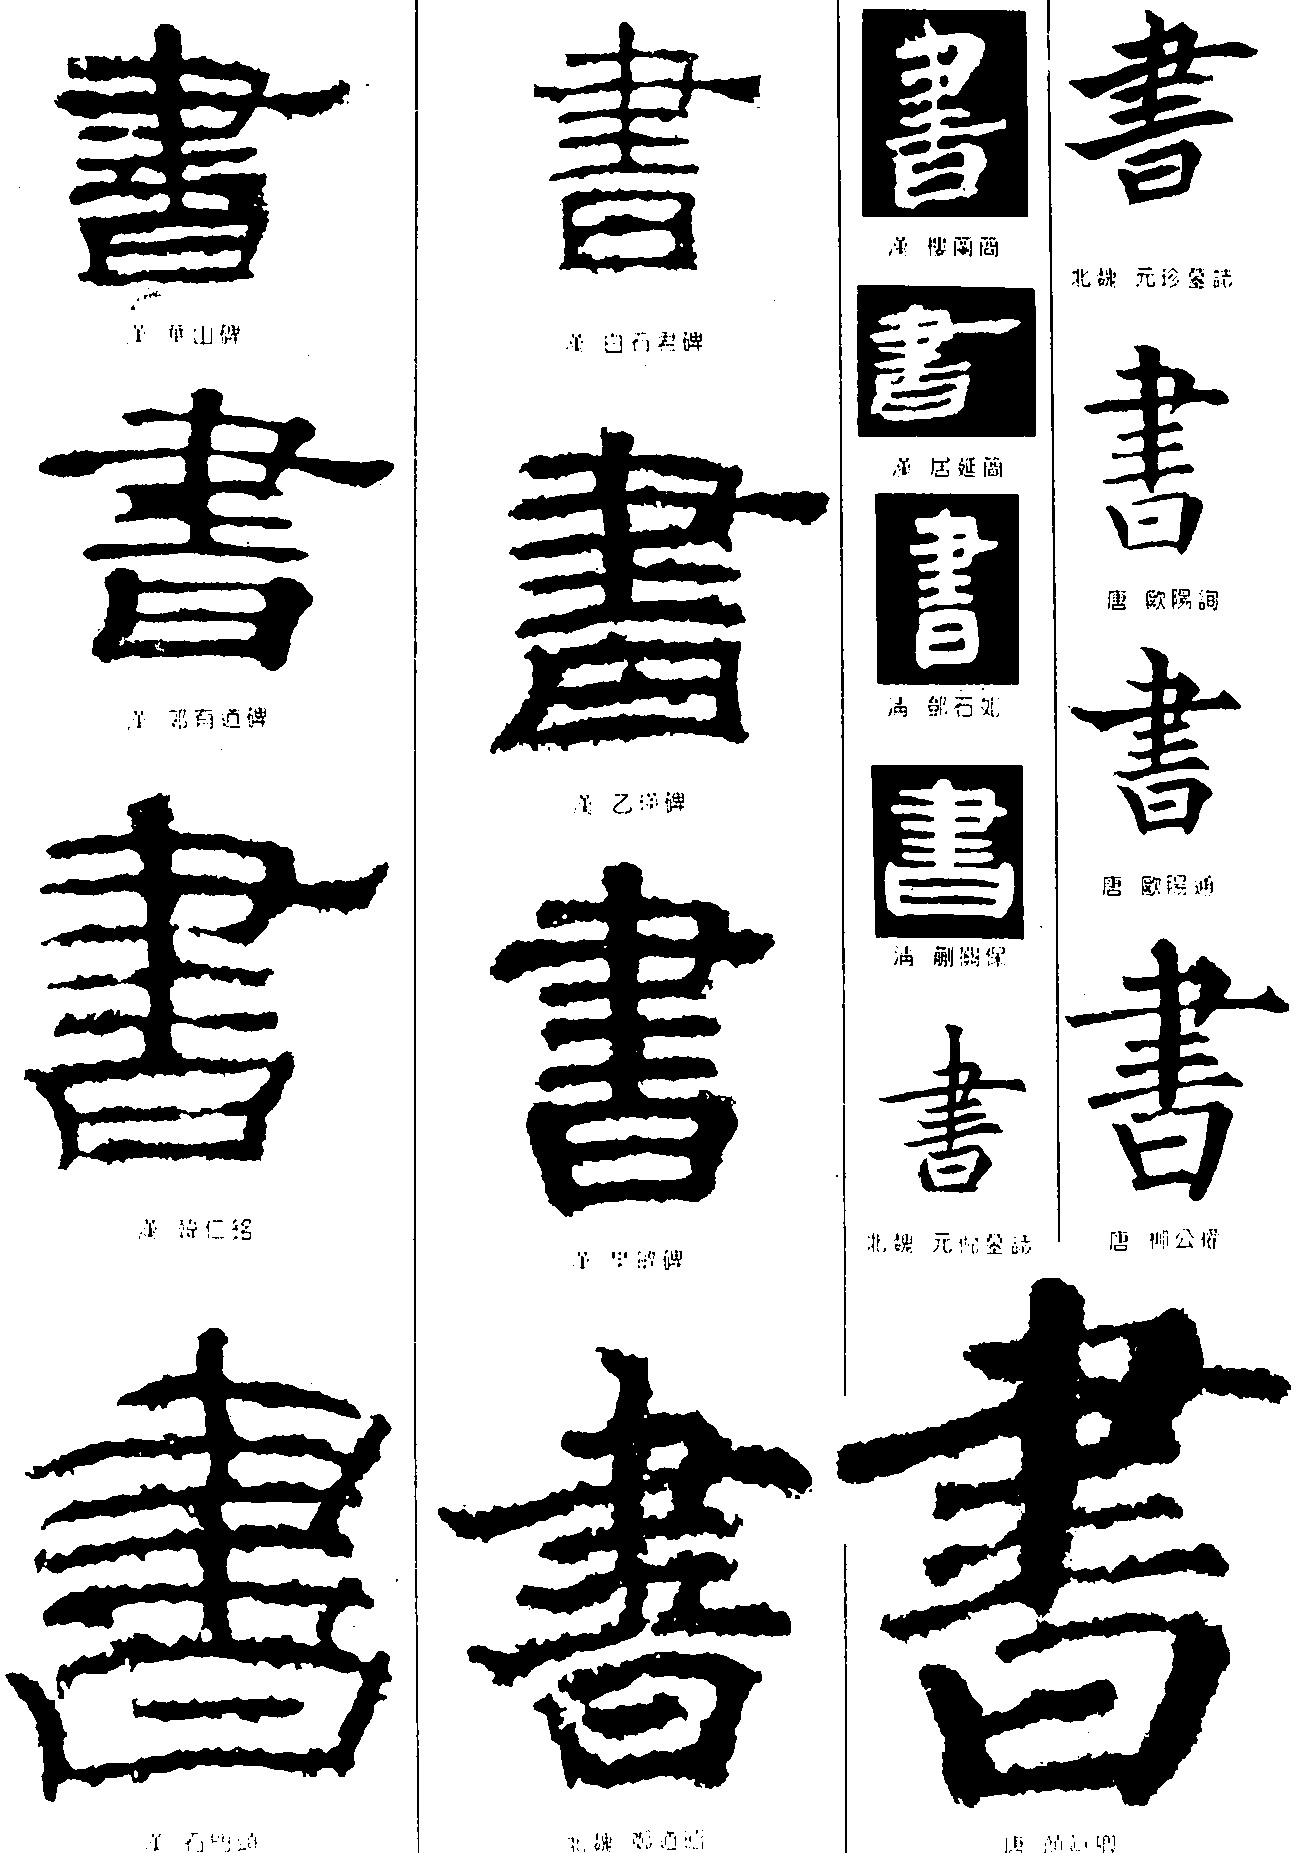 書
北魏 元珍墓誌
書
唐 歐陽詢
書
唐 歐陽通
書
唐 柳公權
書
漢 樓蘭簡
書
漢 居延簡
書
清 鄧石如
書
清 關保
書
北魏 元 墓誌
書
唐 顏真卿
書
漢 白石君碑
書
漢 乙瑛碑
書
漢 碑
書
北魏 鄭道昭
書
漢 華山碑
書
漢 郭有道碑
書
漢 韓仁銘
書
漢 石門頌